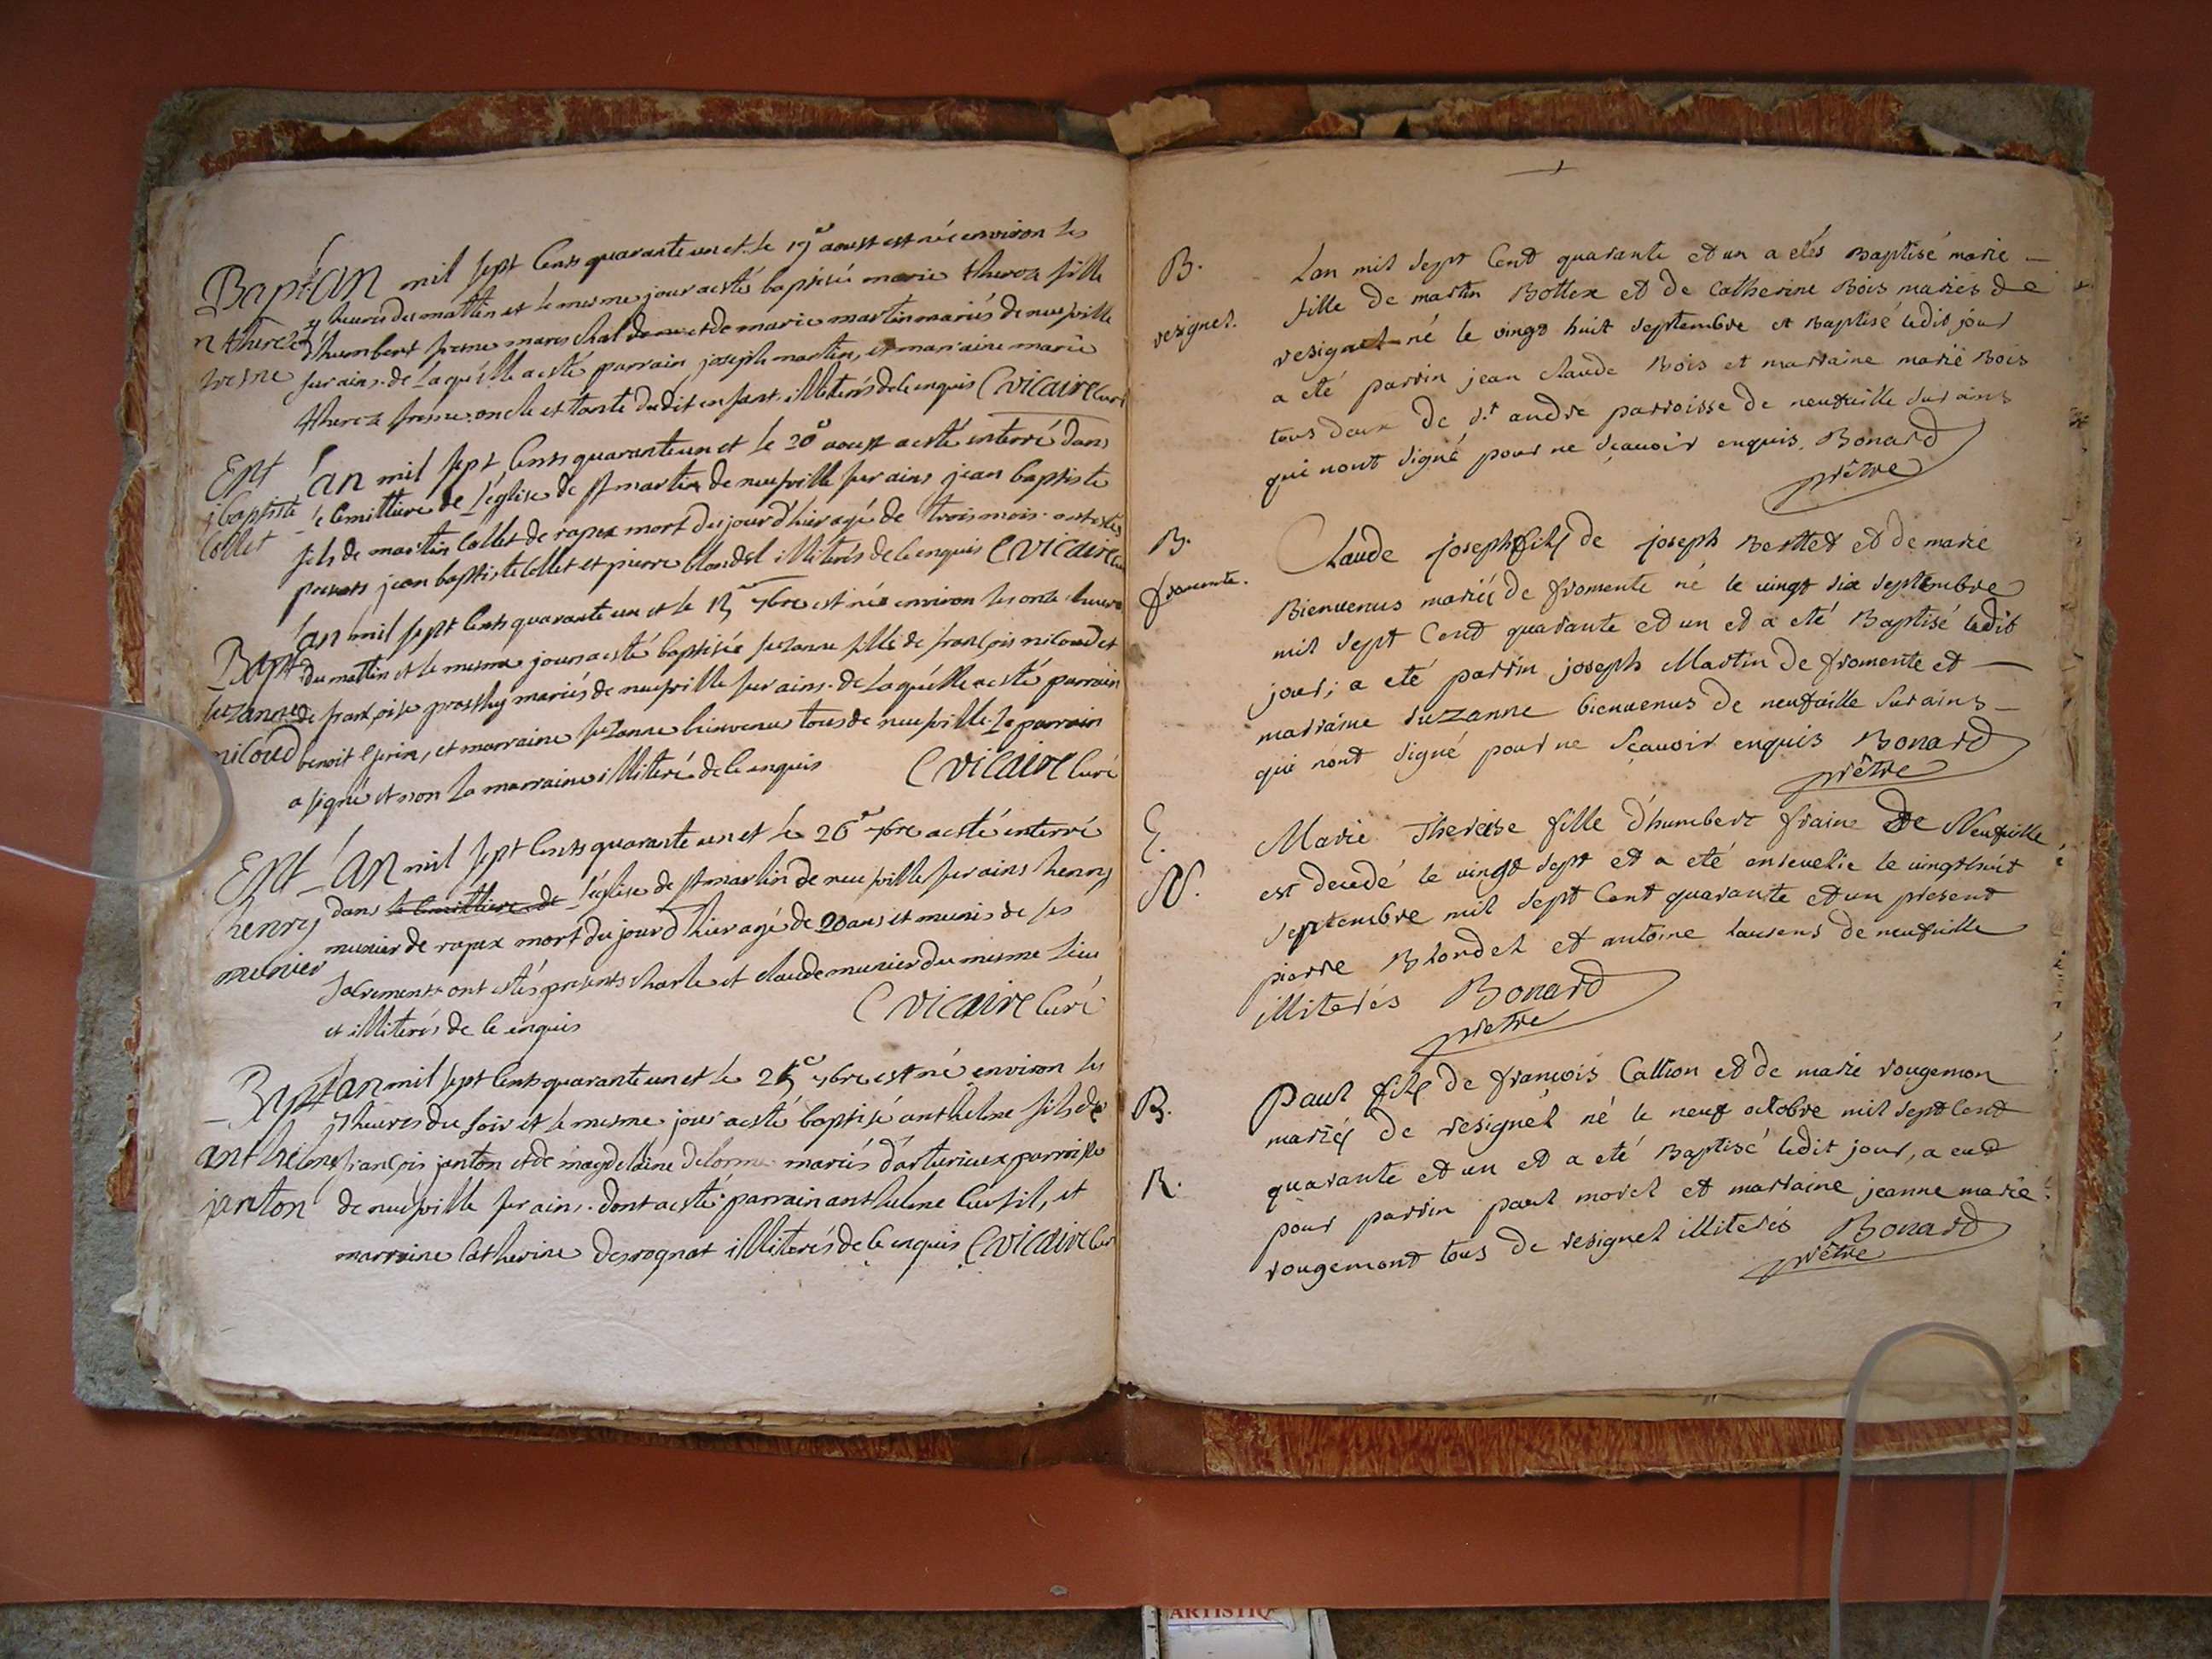 Bapt l'an mil sept Cents quarante un et le 19e aoust est née environ les
heures du mattin et le mesme jour a esté baptisée marie thereze fille
n thereze d'humbert fresne mareschal et de marie martin mariés de neufville
fresne sur ains. de laquélle a esté parrain joseph martin, et marraine marie
thereze fresne. oncle et tante dudit enfant. illiterés de ce enquis C vicaire Curé
Ent l'an mil sept Cents quarante un et le 20e aoust a esté enterré dans
j baptiste le Cemittiere de l'église de st martin de neufville sur ains jean baptiste
Collet fils de martin Collet de rapex mort du jour d'hier agé de trois mois. ont estés
presents jean baptiste Collet et pierre blondel illiterés de ce enquis C vicaire Cu
l'an mil sept Cents quarante un et le 7bre est née environ les onze heures
Bapt du mattin et le mesme jour a esté baptisée suzanne fille de françois niloud et
suzanne de françoise mariés de neufville sur ains. de laquélle a esté parrain
niloud benoit et marraine suzanne bienvenu tous de neufville. le parrain
a signé et non la marraine illiteré de ce enquis C vicaire Curé
Ent l'an mil sept Cents quarante un et le 26e 7bre a esté enterré
henry dans le Cemittiere de l'église de st martin de neufville sur ains henry
munier munier de rapex mort du jour d'hier agé de 20 ans et munis de ses
sacrements ont estés presents charle et claude munier du mesme lieu
et illiterés de ce enquis C vicaire Curé
Bapt l'an mil sept Cents quarante un et le 7bre est né environ les
7 heures du soir et le mesme jour a esté baptisé anthelme fils de
anthelme françois janton et de magdelaine delorme mariés d'arturieux parroisse
janton de neufville sur ains. dont a esté parrain anthelme et
marraine Catherine desrognat illiterés de ce enquis C vicaire Cur
B. Lan mil sept Cent quarante et un a etés Baptisé marie
fille de martin Bottex et de Catherine Bois mariés de
resignel. resignel né le vingt huit septembre et Baptisé ledit jour
a eté parrin jean claude Bois et marraine marie Bois
tous deux de st. andre parroisse de neufuille sur ains
qui nont signé pour ne sçauoir enquis. Bonard
prêtre
B. Claude joseph fils de joseph Berttet et de marie
fromente. Bienuenus mariés de fromente né le vingt six septembre
mil sept Cent quarante et un et a eté Baptisé ledit
jour; a eté parrin joseph Martin de fromente et
marraine suzanne bienuenus de neufuille sur ains
qui nont signé pour ne sçauoir enquis Bonard
prêtre
E. Marie Thereise fille d'humbert fraine de Neufuille
N. est decedé le vingt sept et a eté enseuelie le vingt huit
septembre mil sept Cent quarante et un present
pierre Blondel et antoine laurens de neufuille
illiterés Bonard
pretre
B. Paul fils de françois Callion et de marie rougemon
mariés de resignel né le neuf octobre mil sept Cent
R. quarante et un et a eté Baptisé ledit jour, a eud
pour parrin paul morel et marraine jeanne marie
rougemont tous de resignel illiterés Bonard
prêtre
ARTISTIQ